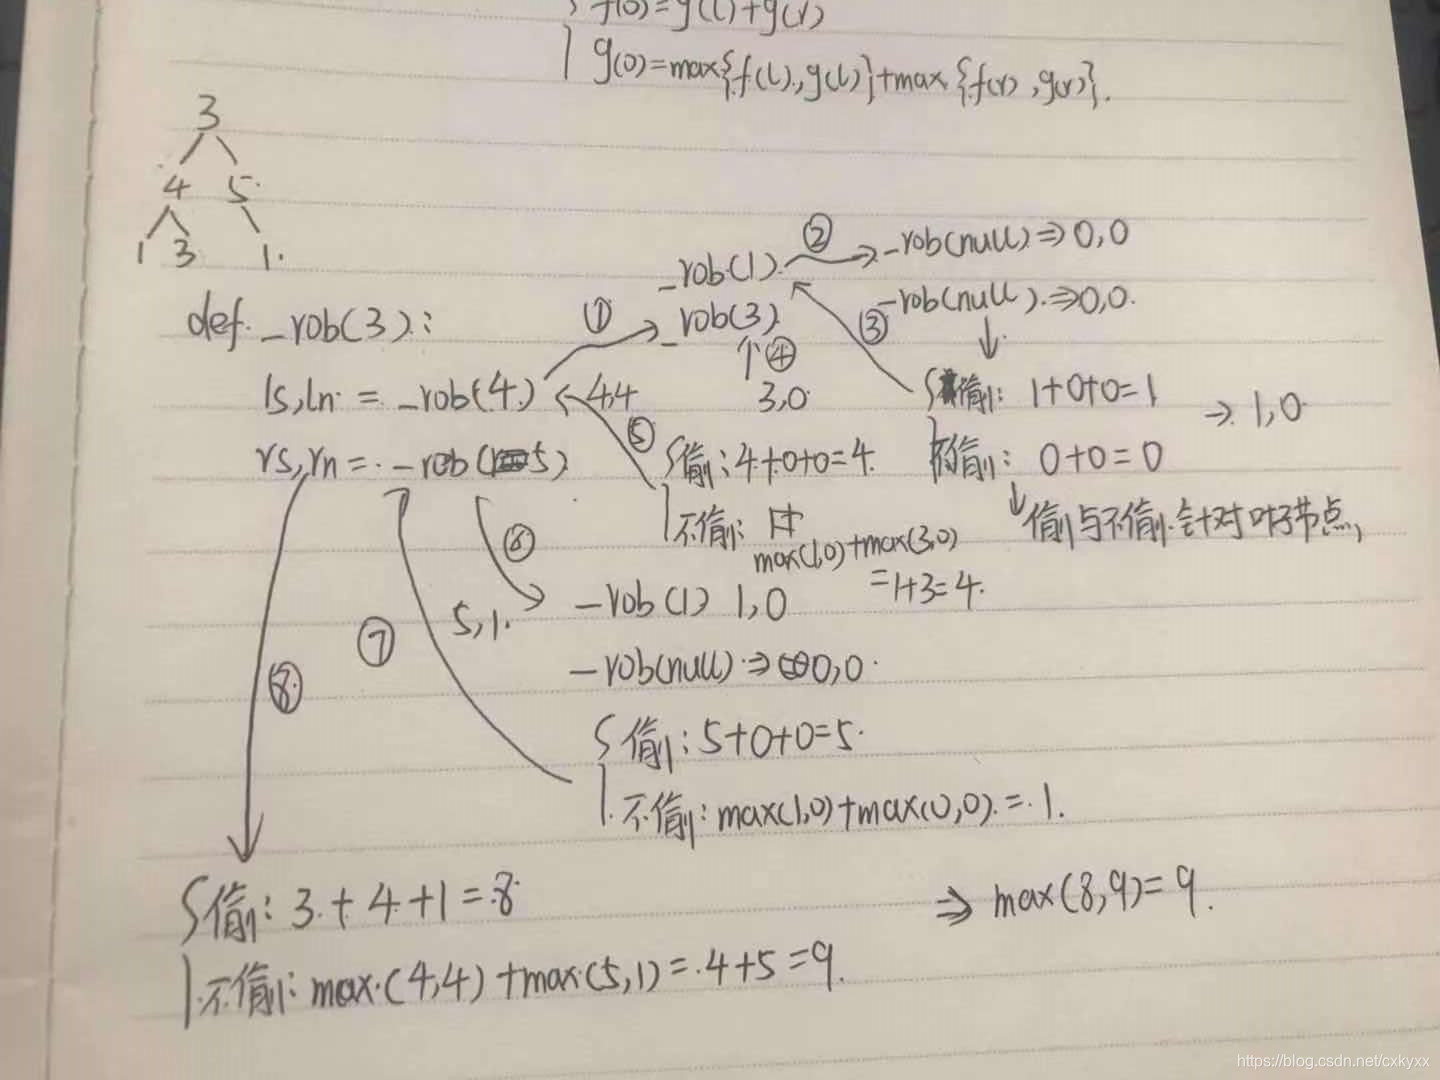 f(0)=g(l)+g(r)
g(0)=max{f(l),g(l)}+max{f(r),g(r)}.
3
4 5
1 3 1
_rob(1) ② _rob(null)⇒0,0
def _rob(3): ① _rob(3) ③ _rob(null)⇒0,0
④
ls,ln = _rob(4) 4,4 3,0 偷: 1+0+0=1 → 1,0
rs,rn = _rob(5) ⑤ 偷:4+0+0=4 不偷: 0+0=0
不偷: max(1,0)+max(3,0) 偷与不偷针对叶子节点,
=1+3=4
⑥
5,1 _rob(1) 1,0
⑦
⑧ _rob(null)⇒0,0
偷:5+0+0=5
不偷:max(1,0)+max(0,0)=1.
偷:3+4+1=8 ⇒ max(8,9)=9.
不偷:max(4,4)+max(5,1)=4+5=9.
https://blog.csdn.net/cxkyxx